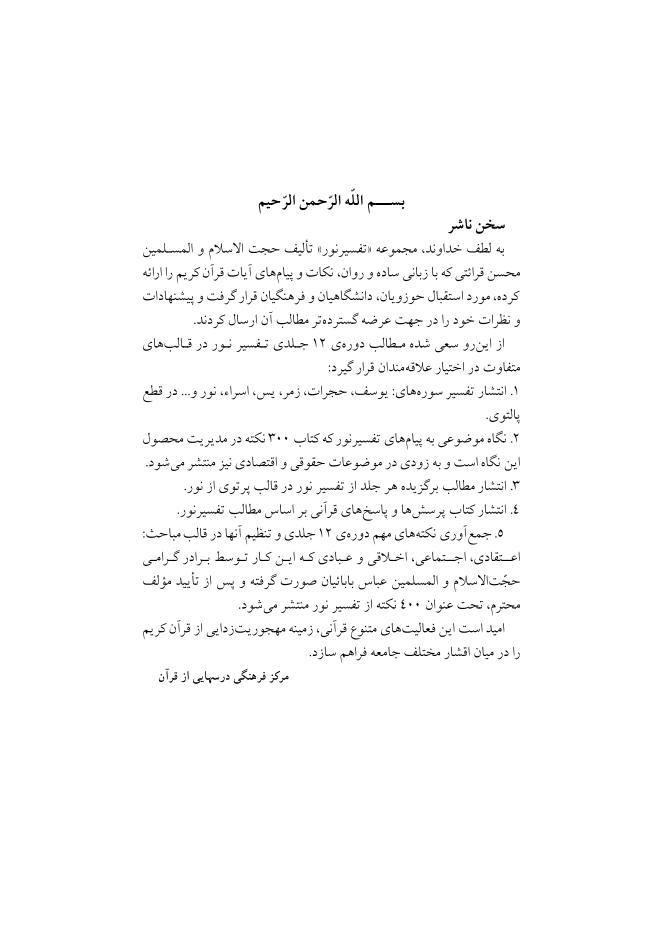 بســـم اللّه الرّحمن الرّحیم
سخن ناشر
به لطف خداوند، مجموعه «تفسیرنور» تألیف حجت الاسلام و المسـلمین
محسن قرائتی که با زبانی ساده و روان، نکات و پیام‌های آیات قرآن کریم را ارائه
کرده، مورد استقبال حوزویان، دانشگاهیان و فرهنگیان قرار گرفت و پیشنهادات
و نظرات خود را در جهت عرضه گسترده‌تر مطالب آن ارسال کردند.
از این‌رو سعی شده مـطالب دوره‌ی ۱۲ جـلدی تـفسیر نـور در قـالب‌های
متفاوت در اختیار علاقه‌مندان قرار گیرد:
۱. انتشار تفسیر سوره‌های: یوسف، حجرات، زمر، یس، اسراء، نور و... در قطع
پالتوی.
۲. نگاه موضوعی به پیام‌های تفسیرنور که کتاب ۳۰۰ نکته در مدیریت محصول
این نگاه است و به زودی در موضوعات حقوقی و اقتصادی نیز منتشر می‌شود.
۳. انتشار مطالب برگزیده هر جلد از تفسیر نور در قالب پرتوی از نور.
٤. انتشار کتاب پرسش‌ها و پاسخ‌های قرآنی بر اساس مطالب تفسیرنور.
۵. جمع‌آوری نکته‌های مهم دوره‌ی ۱۲ جلدی و تنظیم آنها در قالب مباحث:
اعـتقادی، اجـتماعی، اخـلاقی و عبادی کـه ایـن کـار تـوسط بـرادر گـرامـی
حجّت‌الاسلام و المسلمین عباس بابائیان صورت گرفته و پس از تأیید مؤلف
محترم، تحت عنوان ٤۰۰ نکته از تفسیر نور منتشر می‌شود.
امید است این فعالیت‌های متنوع قرآنی، زمینه مهجوریت‌زدایی از قرآن کریم
را در میان اقشار مختلف جامعه فراهم سازد.
مرکز فرهنگی درسهایی از قرآن